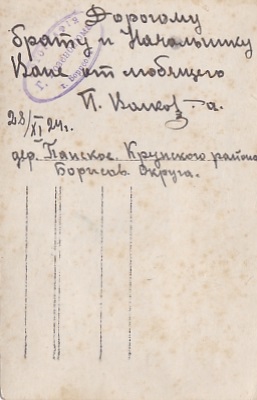 Дорогому
брату и Начальнику
Ване от любящего
П. Волков-а.
28/XI 24 г.
дер. Панское. Крупского района
Борисов. Округа.